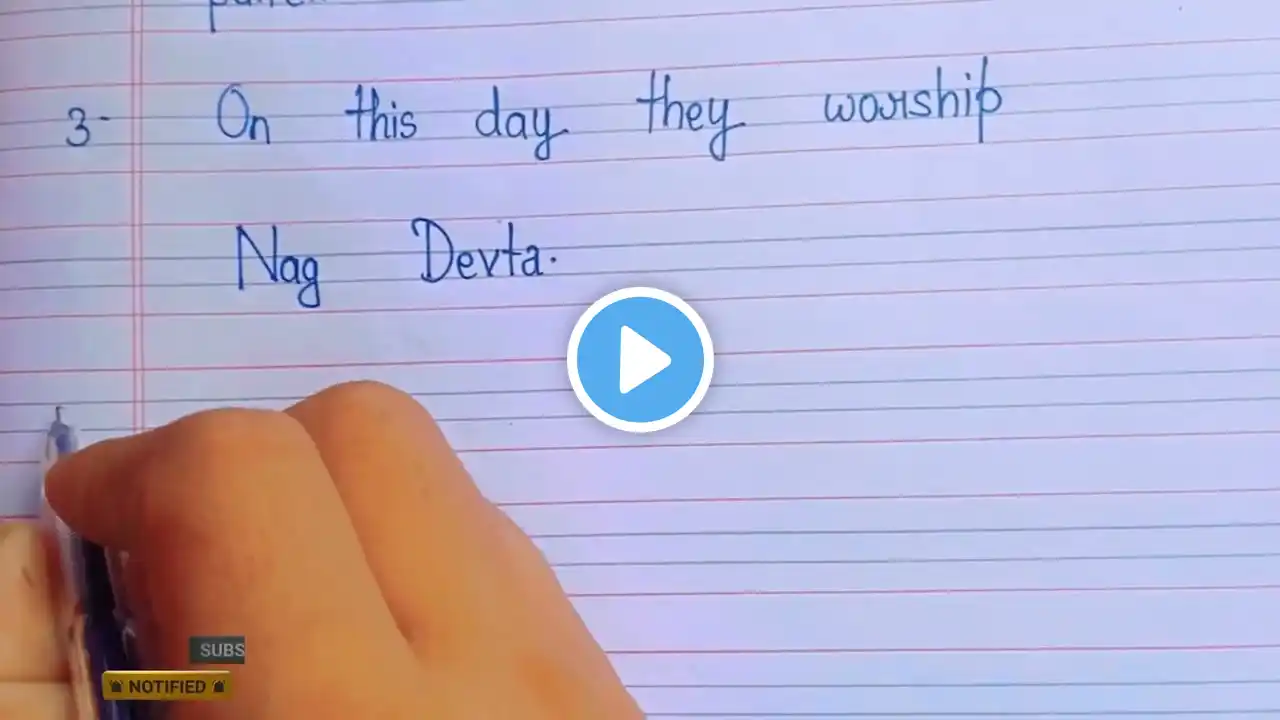 3- On this day they worship
Nag Devta.
SUBS
NOTIFIED